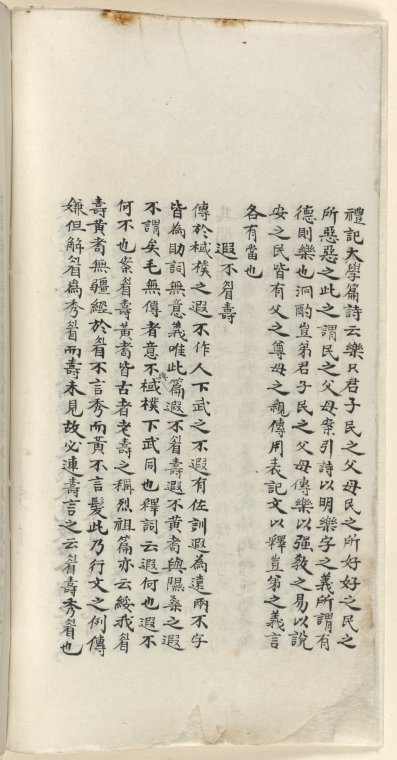 禮記大學篇詩云樂只君子民之父母民之所好好之民之
所惡惡之此之謂民之父母案引詩以明樂字之義所謂有
德則樂也泂酌豈弟君子民之父母傳樂以強教之易以說
安之民皆有父之尊母之親傳用表記文以釋豈弟之義言
各有當也
遐不眉壽
傳於棫樸之遐不作人下武之不遐有佐訓遐為遠兩不字
皆為助詞無意義唯此篇遐不眉壽遐不黃耇與隰桑之遐
不謂矣毛無傳者意不與棫樸下武同也釋詞云遐何也遐不
何不也案眉壽黃耇皆古者老壽之稱烈祖篇亦云綏我眉
壽黃耇無疆經於眉不言秀而黃不言髮此乃行文之例傳
嫌但解眉為秀眉而壽未見故必連壽言之云眉壽秀眉也